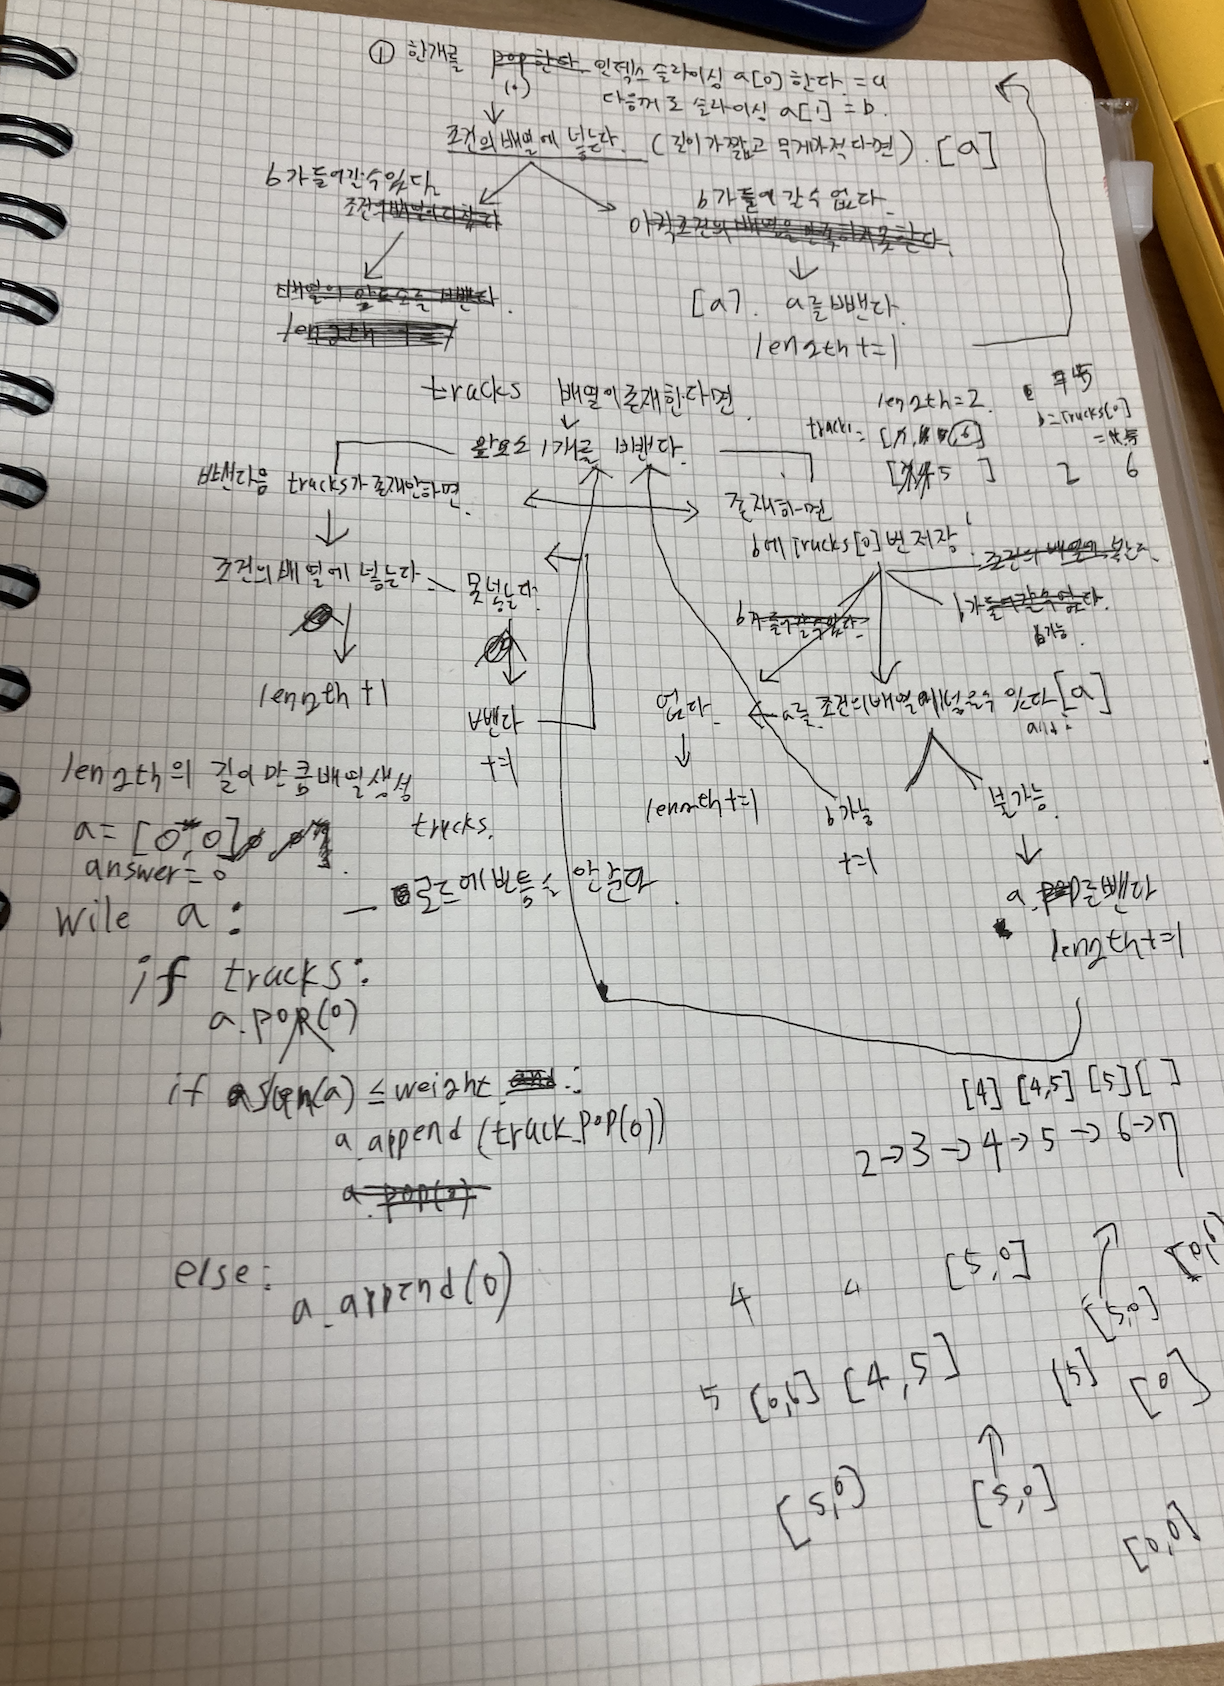 ① 한개를 pop한다 인덱스 슬라이싱 a[0] 한다. = a
(0)
다음꺼로 슬라이싱 a[1] = b.
조건의 배열에 넣는다. (길이가 짧고 무게가 적다면). [a]
b가 들어갈 수 있다.
b가 들어갈 수 없다.
[a]. a를 뺀다.
length += 1
tracks 배열이 존재한다면
length = 2.
tracks =
b = trucks[0]
앞요소 1개를 뺀다.
2 6
뺀다음 tracks가 존재안하면
존재하면
b에 trucks[0]번 저장
조건의 배열에 넣는다
못넣는다.
b가
가능
length +1
뺀다
+=1
없다.
a를 조건의 배열에 넣을 수 있다 [a]
length += 1
b가능
+=1
불가능
a. 를 뺀다
length += 1
length의 길이 만큼 배열 생성
a = [0, 0]
tracks.
answer = 0
로드에 변동을 안준다
wile a :
if tracks:
a.pop(0)
if sum(a) ≤ weight :
a.append(track.pop(0))
a.pop(0)
else:
a.append(0)
[4] [4,5] [5] [ ]
2 → 3 → 4 → 5 → 6 → 7
4 4 [5,0]
[5,0]
[0,6]
5 [0,6] [4,5] [5] [0]
[5,0] [5,0]
[0,0]